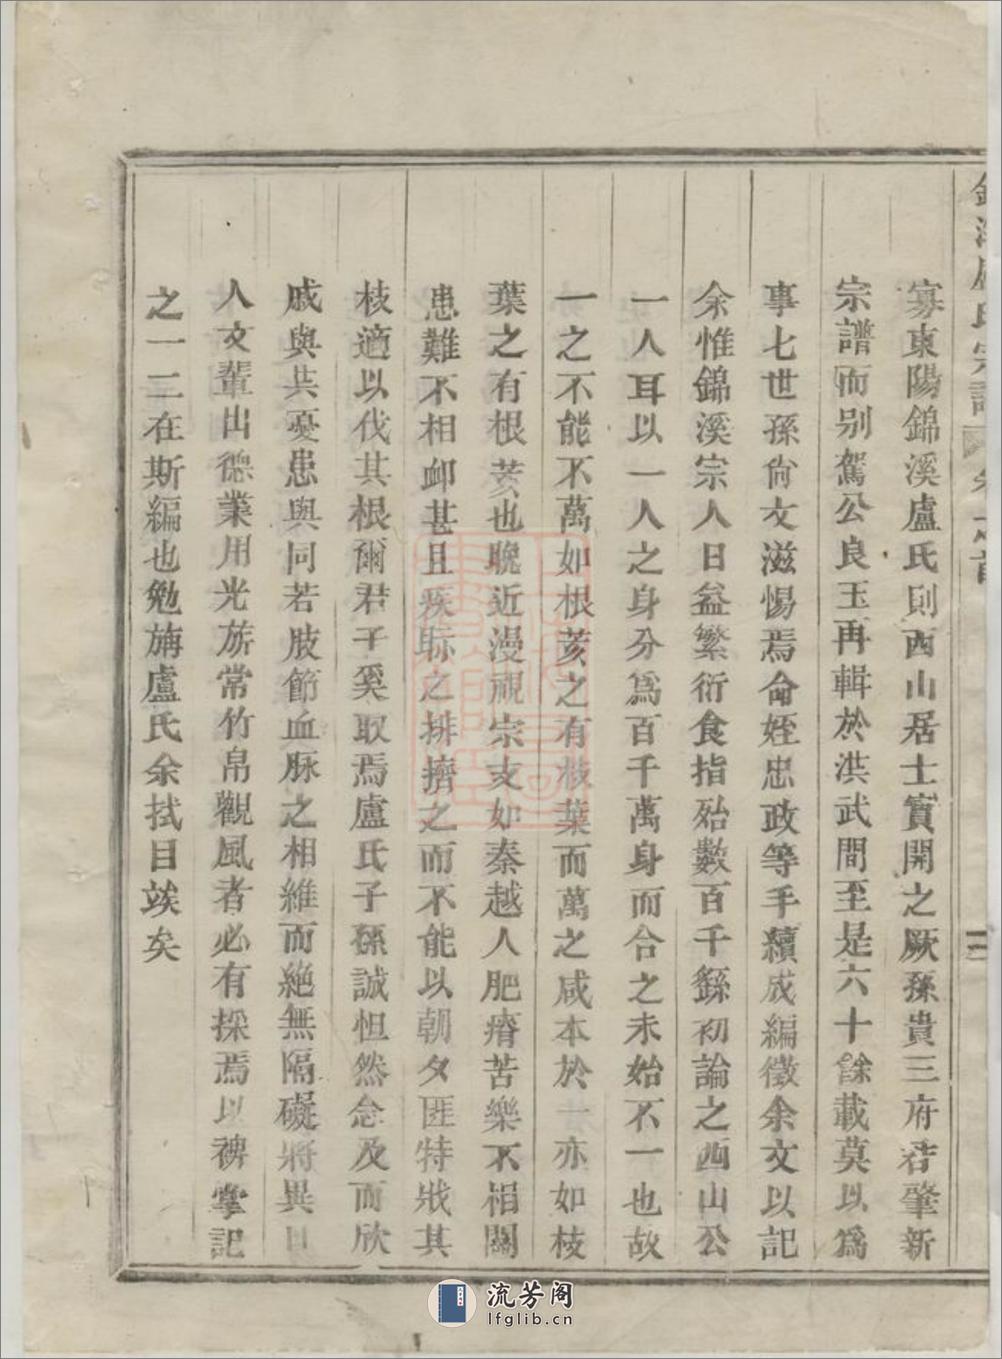 寡東陽錦溪盧氏則西山居士實開之厥孫貴三府君肇新
宗譜而别駕公良玉再輯於洪武間至是六十餘載莫以爲
事七世孫尙文滋惕焉命姪忠政等手續成編徵余文以記
余惟錦溪宗人日益繁衍食指殆數百千繇初論之西山公
一人耳以一人之身分爲百千萬身而合之未始不一也故
一之不能不萬如根荄之有枝葉而萬之咸本於一亦如枝
葉之有根荄也晚近漫視宗支如秦越人肥瘠苦樂不相關
患難不相卹甚且疾眎之排擠之而不能以朝夕匪特戕其
枝適以伐其根爾君子奚取焉盧氏子孫誠怛然念及而欣
戚與共憂患與同若肢節血脉之相維而絶無隔礙將異日
人文輩出德業用光旂常竹帛觀風者必有採焉以裨掌記
之一二在斯編也勉旃盧氏余拭目竢矣
流芳阁
lfglib.cn